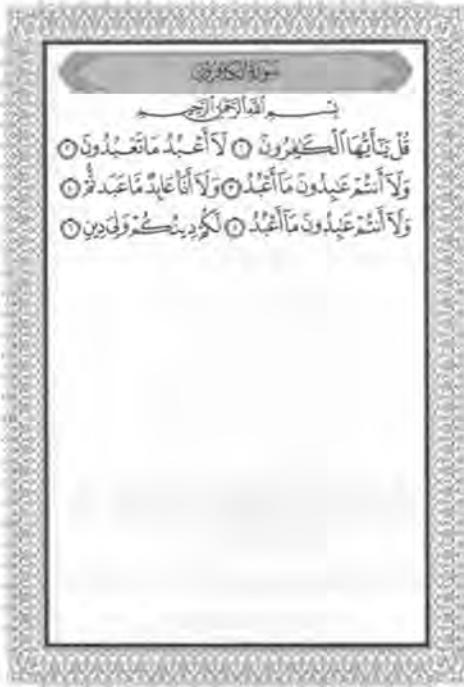 سورة الكافرون
بِسْمِ اللَّهِ الرَّحْمَٰنِ الرَّحِيمِ
قُلْ يَـٰٓأَيُّهَا ٱلْكَـٰفِرُونَ ١ لَآ أَعْبُدُ مَا تَعْبُدُونَ ٢
وَلَآ أَنتُمْ عَـٰبِدُونَ مَآ أَعْبُدُ ٣ وَلَآ أَنَا۠ عَابِدٌ مَّا عَبَدتُّمْ ٤
وَلَآ أَنتُمْ عَـٰبِدُونَ مَآ أَعْبُدُ ٥ لَكُمْ دِينُكُمْ وَلِىَ دِينِ ٦